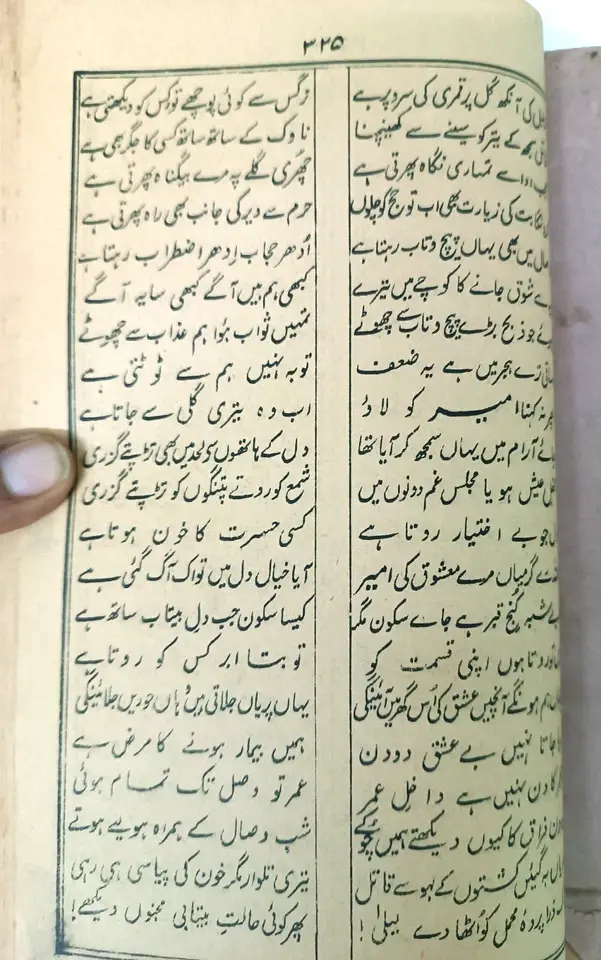 ۳۲۵
کی آنکھ گل پر قمری کی سرو پر ہے نرگس سے کوئی پوچھے تو کس کو دیکھتی ہے
کے تیر کو سینے سے کھینچنا ناوک کے ساتھ ساتھ کسی کا جگر بھی ہے
ادا سے تمہاری نگاہ پھرتی ہے چھری گلے پہ مرے بیگناہ پھرتی ہے
کی زیارت بھی اب تو حج کو چلوں حرم سے دیر کی جانب بھی راہ پھرتی ہے
میں بھی یہاں پیچ و تاب رہتا ہے اُدھر حجاب اِدھر اضطراب رہتا ہے
شوق جانے کا کوچے میں تیرے کبھی ہم ہیں آگے کبھی سایہ آگے
جو ذبح بڑے پیچ و تاب سے چھوٹے تمہیں ثواب ہُوا ہم عذاب سے چھوٹے
ترے ہجر میں ہے یہ ضعف توبہ نہیں ہم سے ٹوٹتی ہے
نہ کہنا امیر کو لا دُ اب وہ تیری گلی سے جاتا ہے
آرام میں یہاں سمجھ کر آیا تھا دل کے ہاتھوں سے لحد میں بھی تڑپتے گزری
عیش ہو یا مجلس غم دونوں میں شمع کو روتے پتنگوں کو تڑپتے گزری
جو بے اختیار روتا ہے کسی حسرت کا خون ہوتا ہے
گرمیاں مرے معشوق کی امیر آیا خیال دل میں تو اک آگ لگ گئی ہے
شبہ کنج قبر ہے جاے سکون مگر کیسا سکون جب دلِ بیتاب ساتھ ہے
روتا ہوں اپنی قسمت کو تو بتا ابر کس کو روتا ہے
ہونگے آنچیں عشق کی اُس گھر میں آئینگی یہاں پریاں جلاتی ہیں وہاں حوریں جلائینگی
جاتا نہیں بے عشق دو دن ہمیں بیمار ہونے کا مرض ہے
دن نہیں ہے داخلِ عمر عمر تو وصل تک تمام ہوئی
فراق کا کیوں دیکھتے ہمیں جو شبِ وصال کے ہمراہ ہو لیے ہوتے
بہ گئیں کشتوں کے لہو سے قاتل تیری تلوار مگر خون کی پیاسی ہی رہی
ذرا پردۂ محمل کو اُٹھا دے لیلیٰ! پھر کوئی حالتِ بیتابیِ مجنوں دیکھے!